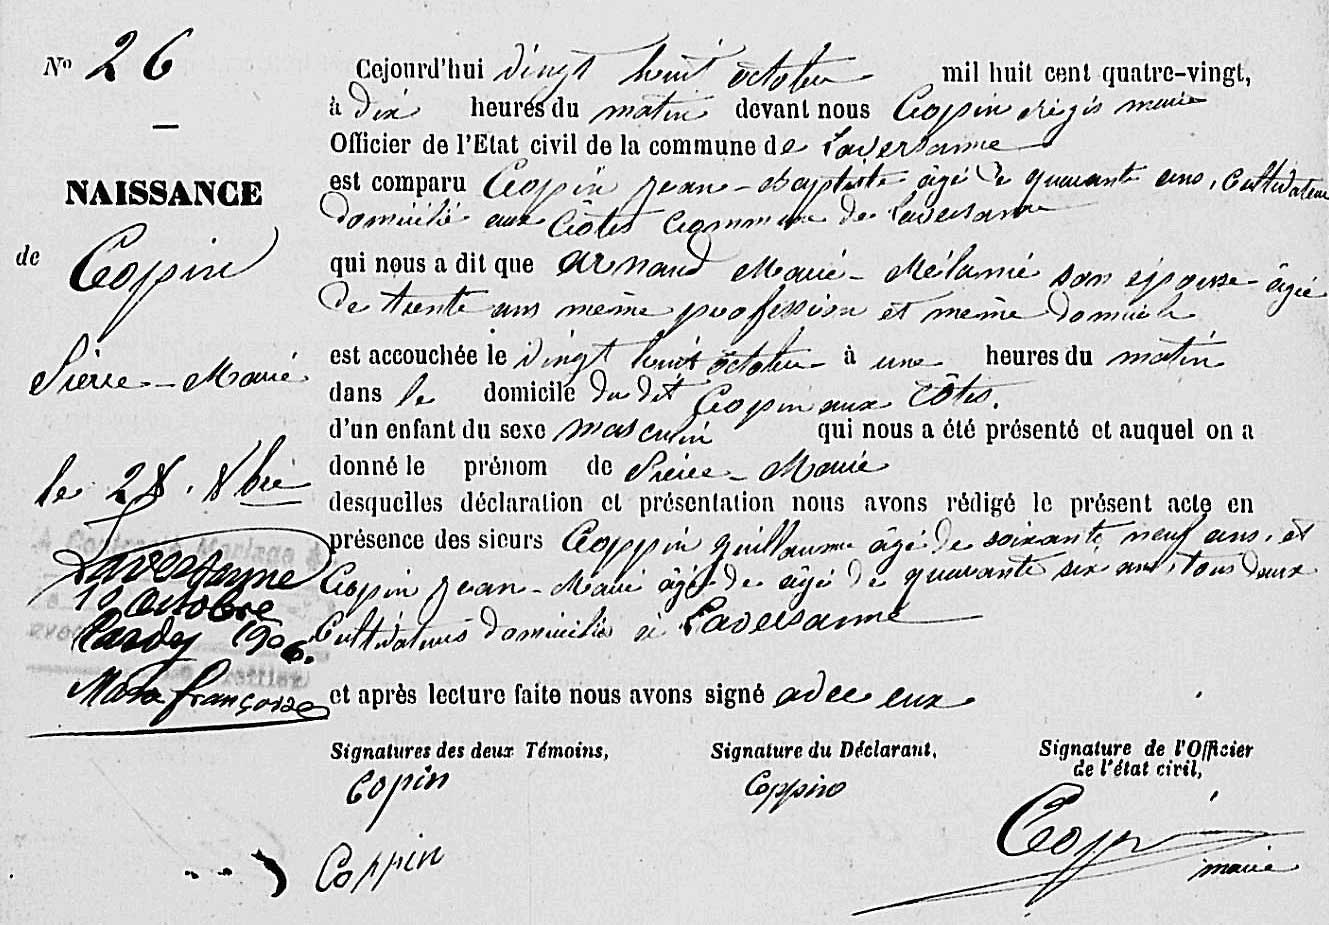 N° 26
NAISSANCE
de
Coppin
Pierre-Marie
le 28. 8bre
A Contracté Mariage à
Laversanne
10 Octobre
1906.
Mara françoise
Cejourd'hui vingt huit octobre mil huit cent quatre-vingt,
à dix heures du matin devant nous Coppin régis marie
Officier de l'Etat civil de la commune de Laversanne
est comparu Coppin Jean-Baptiste âgé de quarante ans, Cultivateur
domicilié aux Côtes Commune de Laversanne
qui nous a dit que Arnaud Marie-Mélanie son épouse âgée
de trente ans même profession et même domicile
est accouchée le vingt huit octobre à une heures du matin
dans le domicile du dit Coppin aux Côtes.
d'un enfant du sexe masculin qui nous a été présenté et auquel on a
donné le prénom de Pierre-Marie
desquelles déclaration et présentation nous avons rédigé le présent acte en
présence des sieurs Coppin guillaume âgé de soixante neuf ans, et
Coppin Jean-Marie âgé de âgé de quarante six ans, tous deux
Cultivateurs domiciliés à Laversanne
et après lecture faite nous avons signé avec eux
Signatures des deux Témoins,
Signature du Déclarant,
Signature de l'Officier
de l'état civil,
Copin
Coppin
Coppin
Coppin
maire